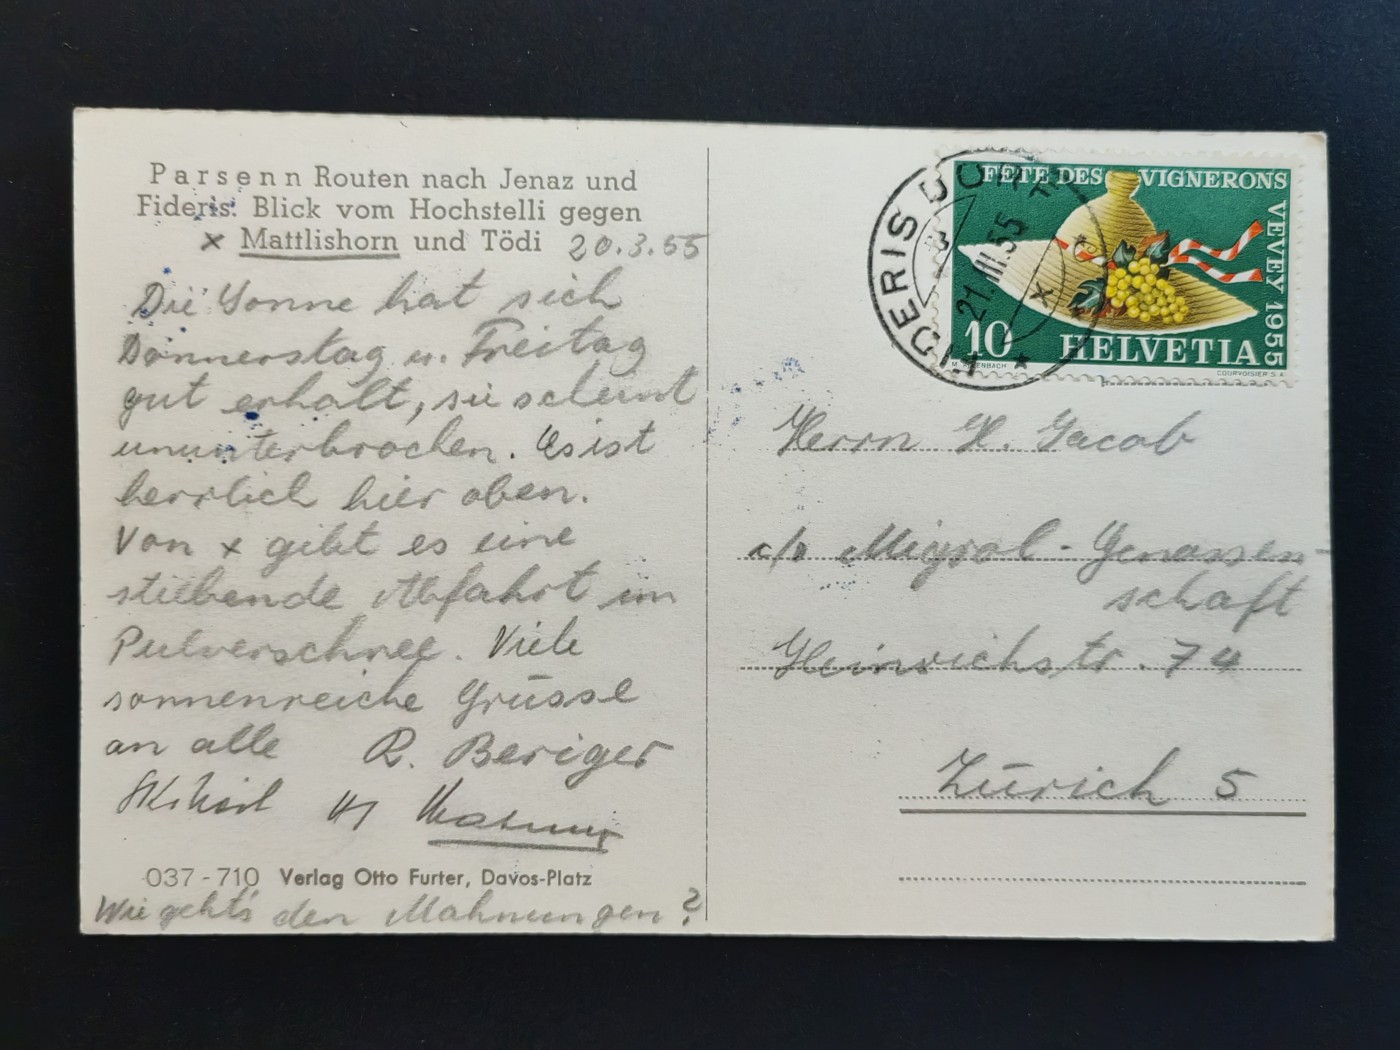 Parsenn Routen nach Jenaz und
Fideris: Blick vom Hochstelli gegen
x Mattlishorn und Tödi 20.3.55
Die Sonne hat sich
Donnerstag u. Freitag
gut erholt, sie scheint
ununterbrochen. Es ist
herrlich hier oben.
Von x gibt es eine
stiebende Abfahrt im
Pulverschnee. Viele
sonnenreiche Grüsse
an alle R. Beriger
037-710 Verlag Otto Furter, Davos-Platz
Wie geht's den Mahnungen?
FIDERIS DORF
21.III.55
FETE DES VIGNERONS
VEVEY 1955
10 HELVETIA
COURVOISIER S.A.
Herrn H. Jacob
c/o Migrol-Genossen-
schaft
Heinrichstr. 74
Zürich 5